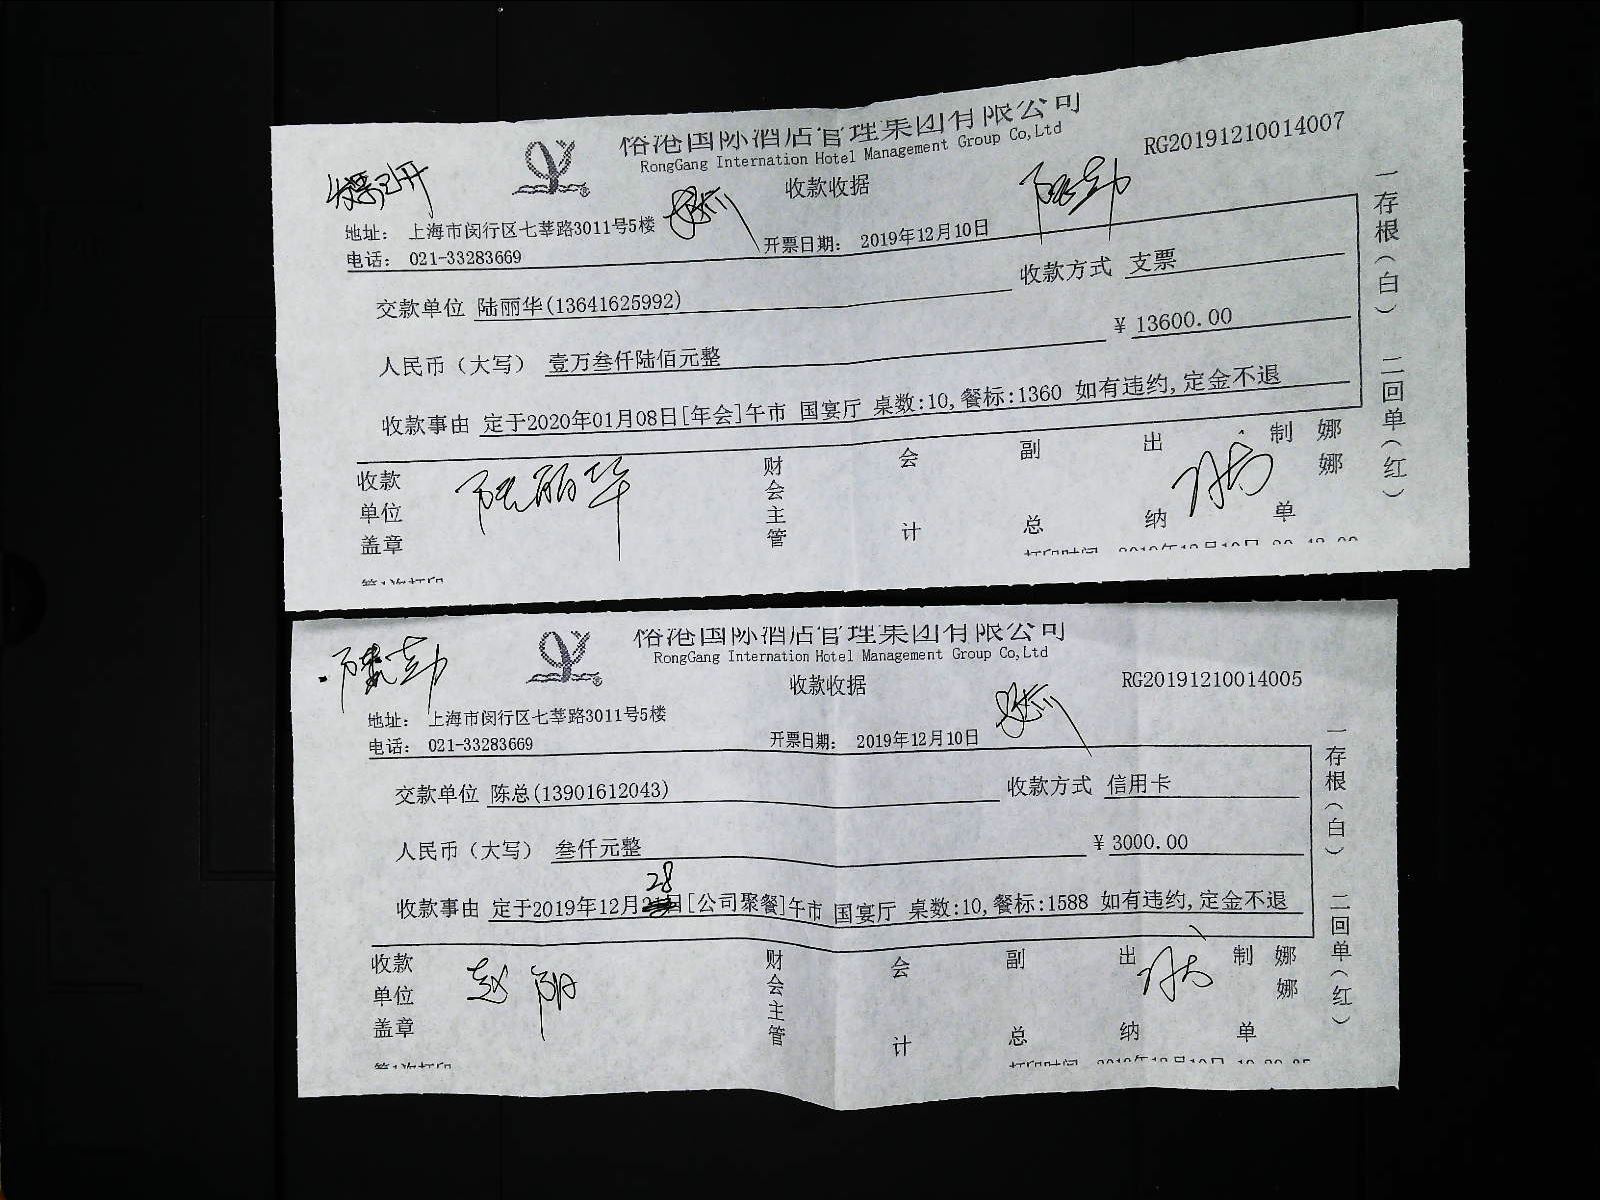 俗港国际酒店管理集团有限公司
RongGang Internation Hotel Management Group Co,Ltd
RG20191210014007
收款收据
地址： 上海市闵行区七莘路3011号5楼
电话： 021-33283669
开票日期： 2019年12月10日
交款单位 陆丽华(13641625992)
收款方式 支票
人民币（大写） 壹万叁仟陆佰元整
¥ 13600.00
收款事由 定于2020年01月08日[年会]午市 国宴厅 桌数:10,餐标:1360 如有违约,定金不退
一存根（白） 二回单（红）
收款单位盖章
陆丽华
财会主管
会计
副总
出纳
制单
娜娜
第1次打印
俗港国际酒店管理集团有限公司
RongGang Internation Hotel Management Group Co,Ltd
RG20191210014005
收款收据
地址： 上海市闵行区七莘路3011号5楼
电话： 021-33283669
开票日期： 2019年12月10日
交款单位 陈总(13901612043)
收款方式 信用卡
人民币（大写） 叁仟元整
¥ 3000.00
28
收款事由 定于2019年12月 [公司聚餐]午市 国宴厅 桌数:10,餐标:1588 如有违约,定金不退
一存根（白） 二回单（红）
收款单位盖章
财会主管
会计
副总
出纳
制单
娜娜
第1次打印